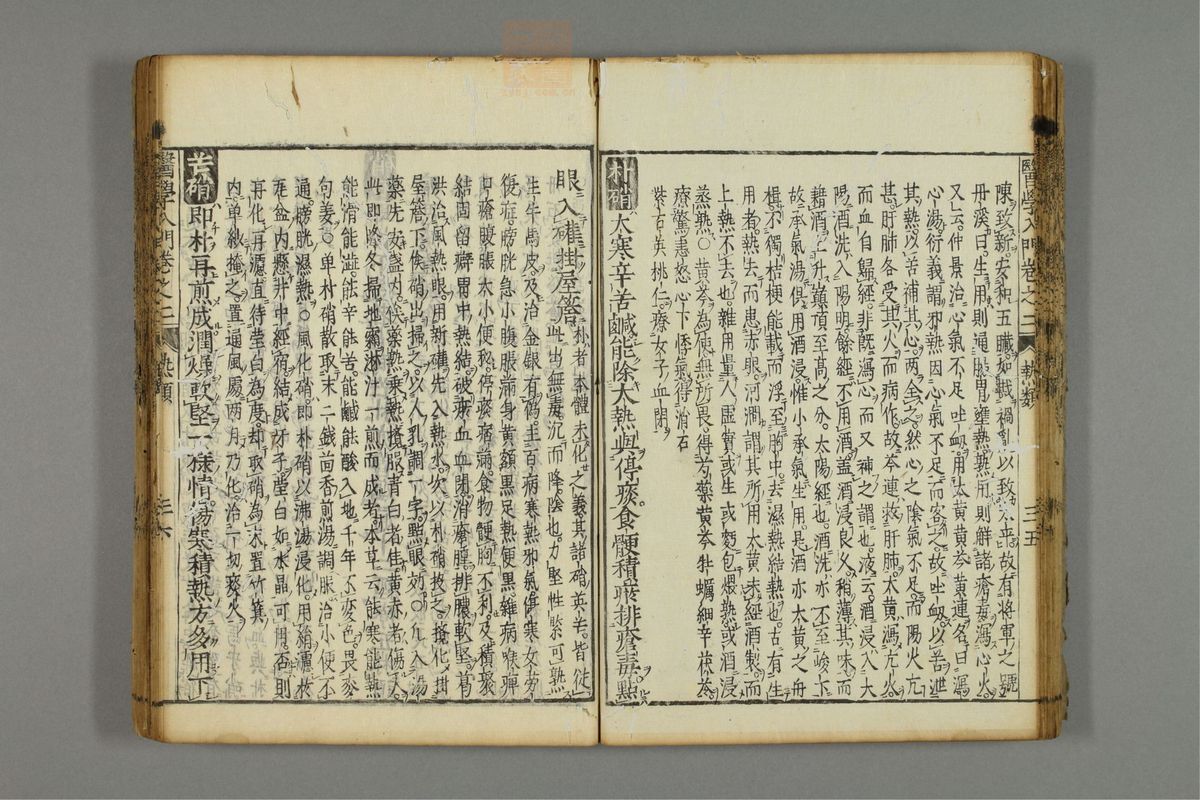 醫學入門卷之二 熱類 三五
陳致新。安和五臟。如戡禍亂以致太平。故有將軍之號
丹溪曰。生用則通腸胃壅熱。熱用則解諸瘡毒。瀉心火。
又云。仲景治心氣不足吐衄。用大黃黃芩黃連。名曰瀉
心湯。衍義謂邪熱因心氣不足而客之。故吐衄。以苦泄
其熱。以苦補其心。兩全之。然心之陰氣不足。而陽火亢
甚。肝肺各受其火而病作。故芩連救肝肺。大黃瀉亢火。
而血自歸經。非既瀉心而又補之謂也。液云。酒浸入太
陽。酒洗入陽明。餘經不用酒。蓋酒浸良久。稍薄其味。而
藉酒上升巔頂至高之分。太陽經也。酒洗亦不至峻下
故承氣湯俱用酒浸。惟小承氣生用。是酒亦大黃之舟
楫。不獨桔梗能載而浮至胸中。去濕熱結熱也。古有生
用者。熱去而患赤眼。河澗謂其所用大黃未經酒製。而
上熱不去也。雜用量人虛實。或生或麪包煨熟。或酒浸
蒸熟。○黃芩為使。無所畏。得芍藥黃芩牡蠣細辛茯苓
療驚恚怒。心下悸氣。得消石
紫石英桃仁。療女子血閉。
朴硝 大寒辛苦鹹。能除大熱與停痰。食鯁積瘀排瘡毒。點
眼入罐掛屋簷。
朴者本體未化之義。其諸硝英芒。皆從
此出。無毒。沉而降。陰也。力堅性緊。可熟
生牛馬皮。及治金銀有偽。主百病寒熱邪氣。傷寒女勞
復症。膀胱急。小腹脹滿。身黃額黑足熱便黑。雜病喉痺
口瘡。腹脹。大小便秘。停痰痞滿。食物鯁胸不利。及積聚
結固留癖。胃中熱結。破瘀血血閉。消瘡腫。排膿軟堅。蒿
洪治風熱眼。用新罐先入熱水。次以朴硝投之。攪化。掛
屋簷下。俟硝出掃之。以人乳調一字點眼。効。○凡入湯
藥。先安盞內。伏藥熱乘熱攪服。青白者佳。黃赤者傷人。
此即降冬掃地霜淋汁。一煎而成者。本草云。能寒能熱
能滑能澁。能辛能苦。能鹹能酸。入地千年不変色。畏麥
句姜。○单朴硝散。取末二錢。茴香煎湯調服。治小便不
通。膀胱濕熱。○風化硝。即朴硝以沸湯浸化。用絹濾。於
瓦盆內。懸井中經宿。結成牙子。瑩白如水晶可用。否則
再化再濾。直待瑩白為度。却取硝為末。置竹箕
内。单紗掩之。置通風處。兩月乃化。治一切痰火。
芒硝 即朴再煎成。潤燥軟堅一樣情。傷寒積熱方多用。下
醫學入門卷之二 熱類 三六